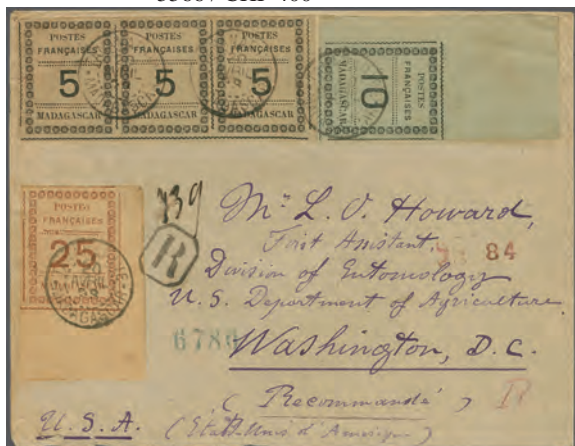 POSTES
FRANÇAISES
5
MADAGASCAR
POSTES
FRANÇAISES
5
MADAGASCAR
POSTES
FRANÇAISES
5
MADAGASCAR
POSTES
FRANÇAISES
10
MADAGASCAR
POSTES
FRANÇAISES
25
739
R
Mr. L. O. Howard,
First Assistant.
84
Division of Entomology
U. S. Department of Agriculture.
6780
Washington, D. C.
(Recommandé)
R
U. S. A.
(États-Unis d'Amérique)